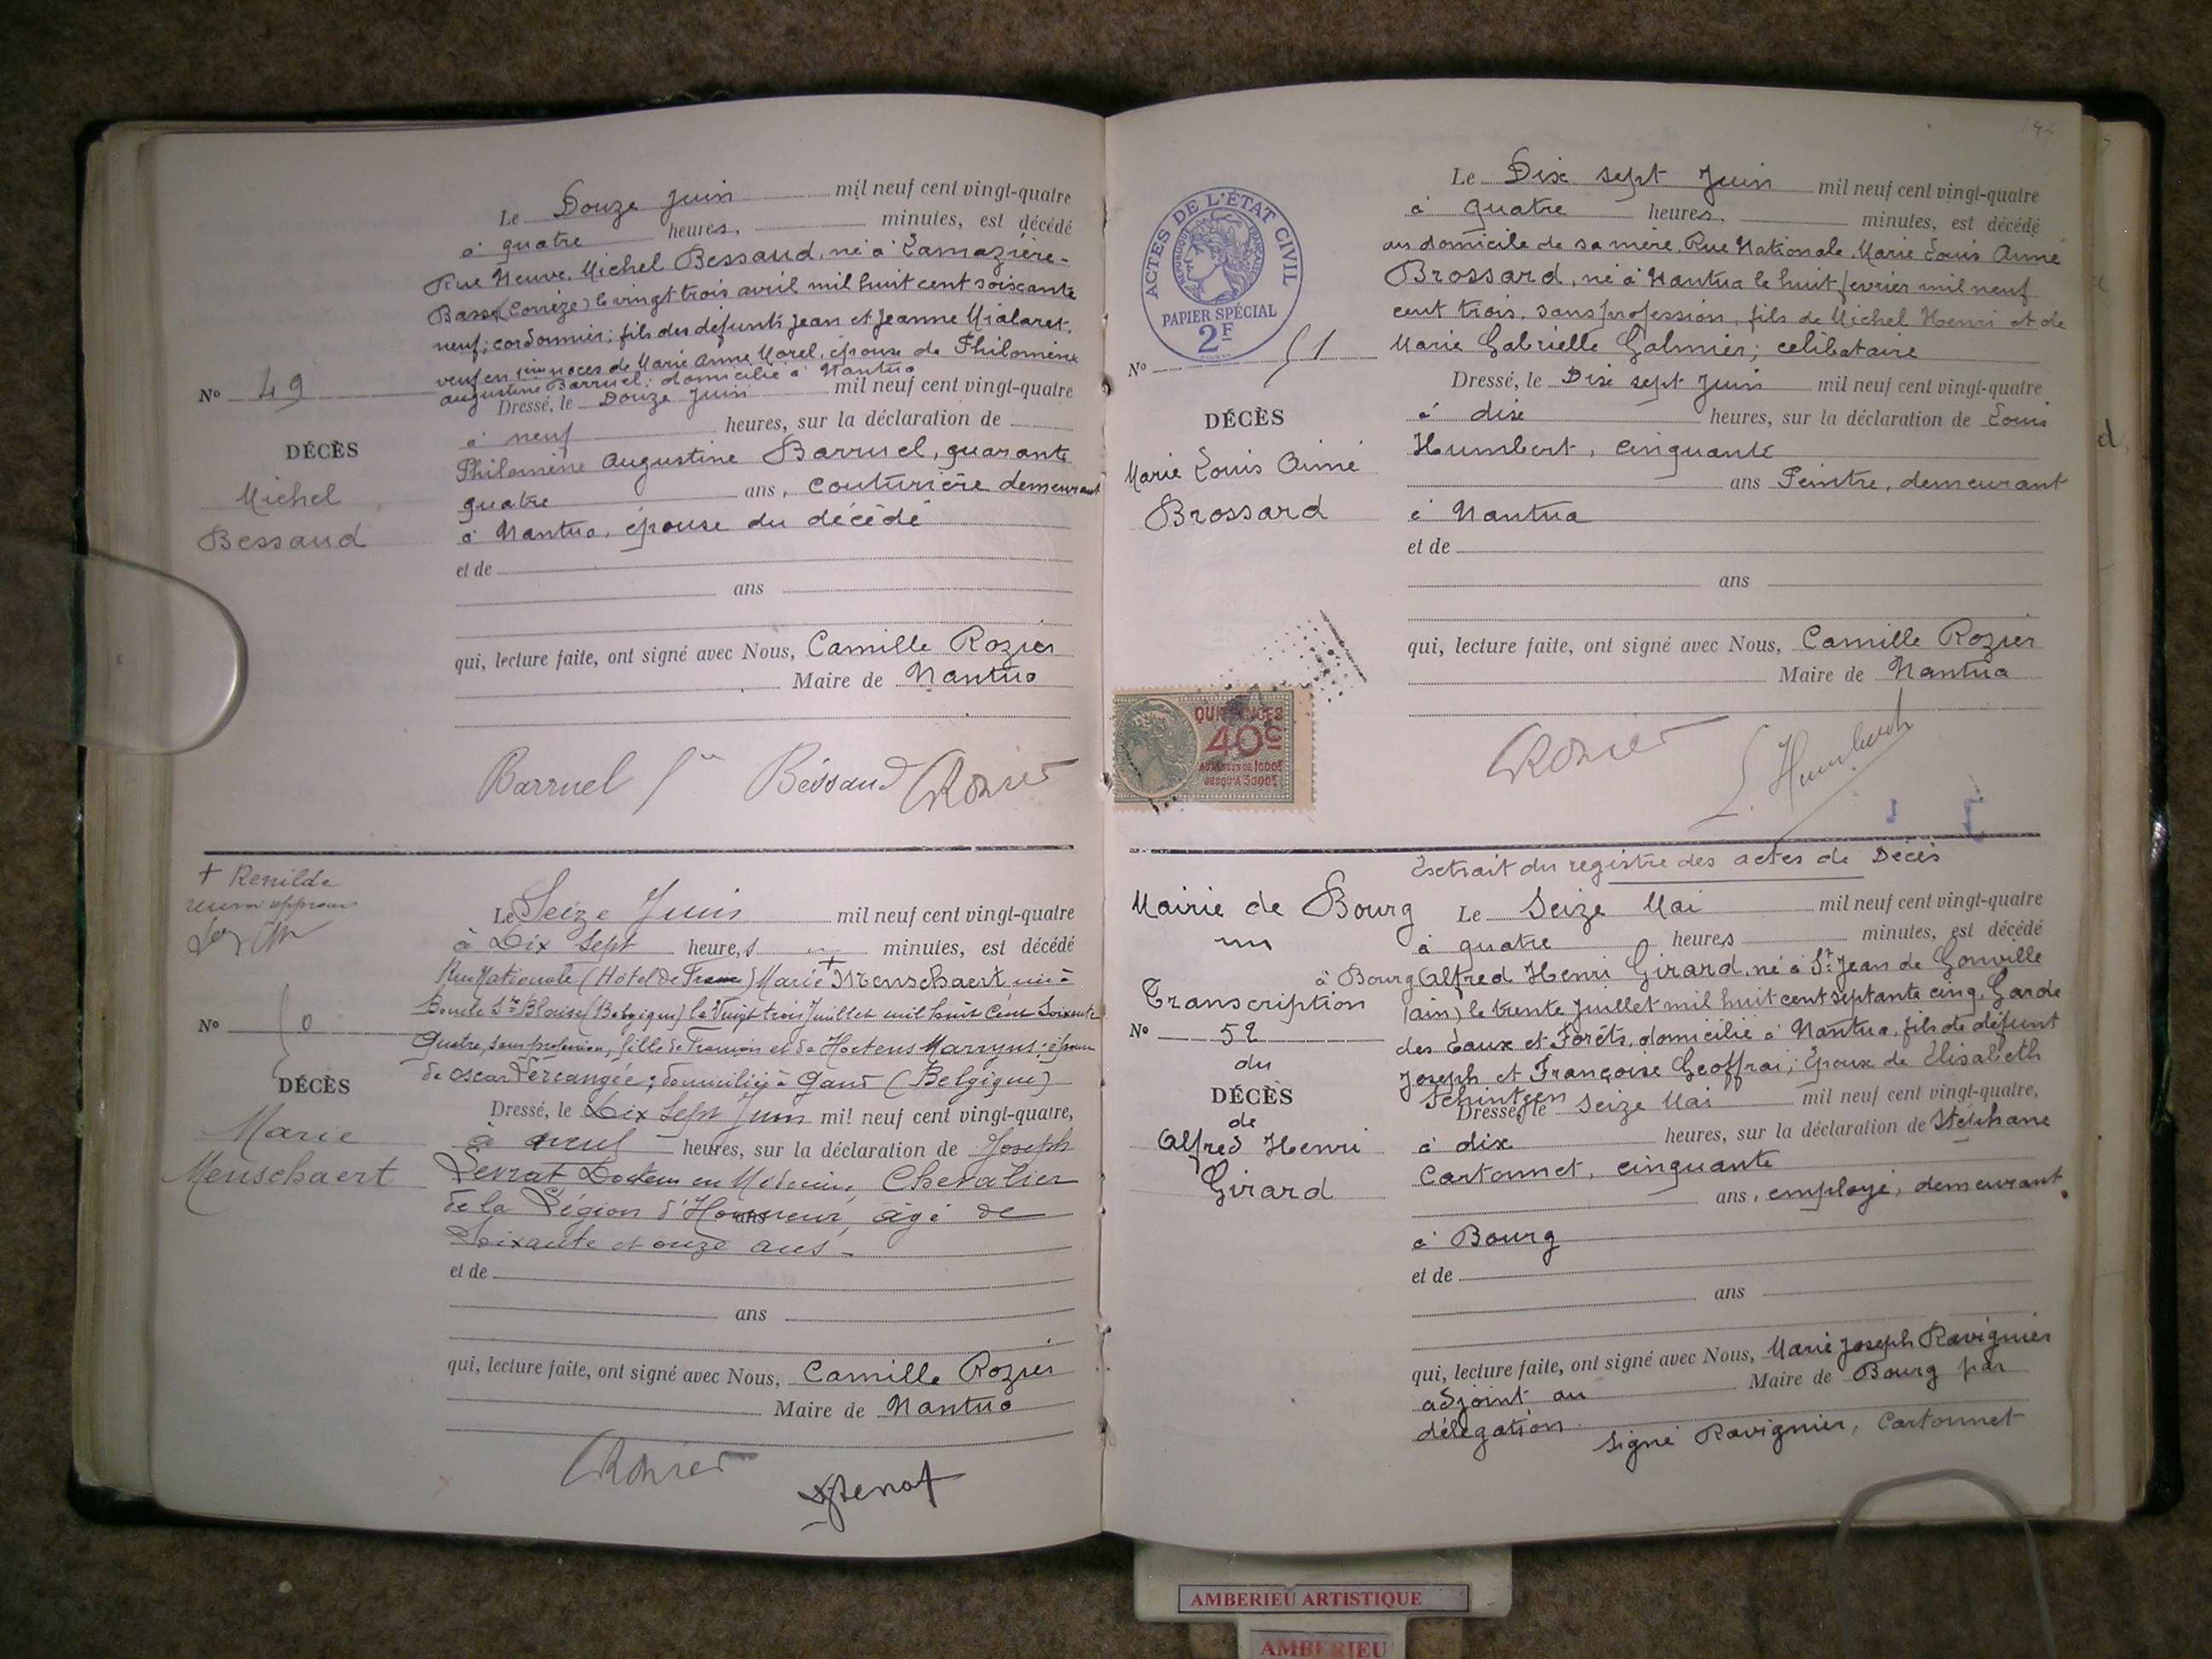 Le Douze Juin mil neuf cent vingt-quatre
à quatre heures, minutes, est décédé
Rue Neuve, Michel Bessaud, né à Lamazière-
Basse (Corrèze) le vingt trois avril mil huit cent soixante
neuf; cordonnier; fils des défunts Jean et Jeanne Mialaret,
veuf en noces de Marie Anne Morel, épouse de Philomène
Augustine Barruel; domicilié à Nantua
No 49
Dressé, le Douze Juin mil neuf cent vingt-quatre
à neuf heures, sur la déclaration de
DÉCÈS
Michel
Bessaud
Philomène Augustine Barruel, quarante
quatre ans, couturière demeurant
à Nantua, épouse du décédé
et de
ans
qui, lecture faite, ont signé avec Nous, Camille Rozier
Maire de Nantua
Barruel Bessaud CRozier
+ Renilde
Le Seize Juin mil neuf cent vingt-quatre
à Dix Sept heure,s minutes, est décédé
Rue Nationale (Hôtel de France) Marie + Menschaert née à
Boucle St Blaise (Belgique) le Vingt trois Juillet mil huit cent soixante
Quatre, sans profession, fille de François et de Hortens Marryns; épouse
de Oscar ; domiciliée à Gand (Belgique)
No 50
DÉCÈS
Marie
Menschaert
Dressé, le Dix Sept Juin mil neuf cent vingt-quatre,
à neuf heures, sur la déclaration de Joseph
Docteur en Médecine, Chevalier
de la Légion d'Honneur, agé de
Soixante et onze ans
et de
ans
qui, lecture faite, ont signé avec Nous, Camille Rozier
Maire de Nantua
CRozier
ACTES DE L'ÉTAT CIVIL
RÉPUBLIQUE FRANÇAISE
PAPIER SPÉCIAL
2F
No 51
DÉCÈS
Marie Louis Aimé
Brossard
Le Dix sept Juin mil neuf cent vingt-quatre
à quatre heures, minutes, est décédé
au domicile de sa mère, Rue Nationale, Marie Louis Aimé
Brossard, né à Nantua le huit février mil neuf
cent trois, sans profession, fils de Michel Henri et de
Marie Gabrielle Galmier; célibataire
Dressé, le Dix sept Juin mil neuf cent vingt-quatre
à dix heures, sur la déclaration de Louis
Humbert, cinquante
ans Peintre, demeurant
à Nantua
et de
ans
qui, lecture faite, ont signé avec Nous, Camille Rozier
Maire de Nantua
QUITTANCES
40c
AU DESSUS DE 1000F
JUSQU'À 3000F
CRozier
L. Humbert
Extrait du registre des actes de Décès
Mairie de Bourg
Transcription
No 52
du
DÉCÈS
de
Alfred Henri
Girard
Le Seize Mai mil neuf cent vingt-quatre
à quatre heures minutes, est décédé
à Bourg Alfred Henri Girard, né à St Jean de Gonville
(ain) le trente Juillet mil huit cent septante cinq, Garde
des Eaux et Forêts, domicilié à Nantua, fils de défunt
Joseph et Françoise Geoffrai; Epoux de Elisabeth
Schintgen
Dressé, le Seize Mai mil neuf cent vingt-quatre,
à dix heures, sur la déclaration de Stéphane
Cartonnet, cinquante
ans, employé, demeurant
à Bourg
et de
ans
qui, lecture faite, ont signé avec Nous, Marie Joseph Ravignier
adjoint au Maire de Bourg par
délégation.
Signé Ravignier, Cartonnet
AMBERIEU ARTISTIQUE
AMBERIEU